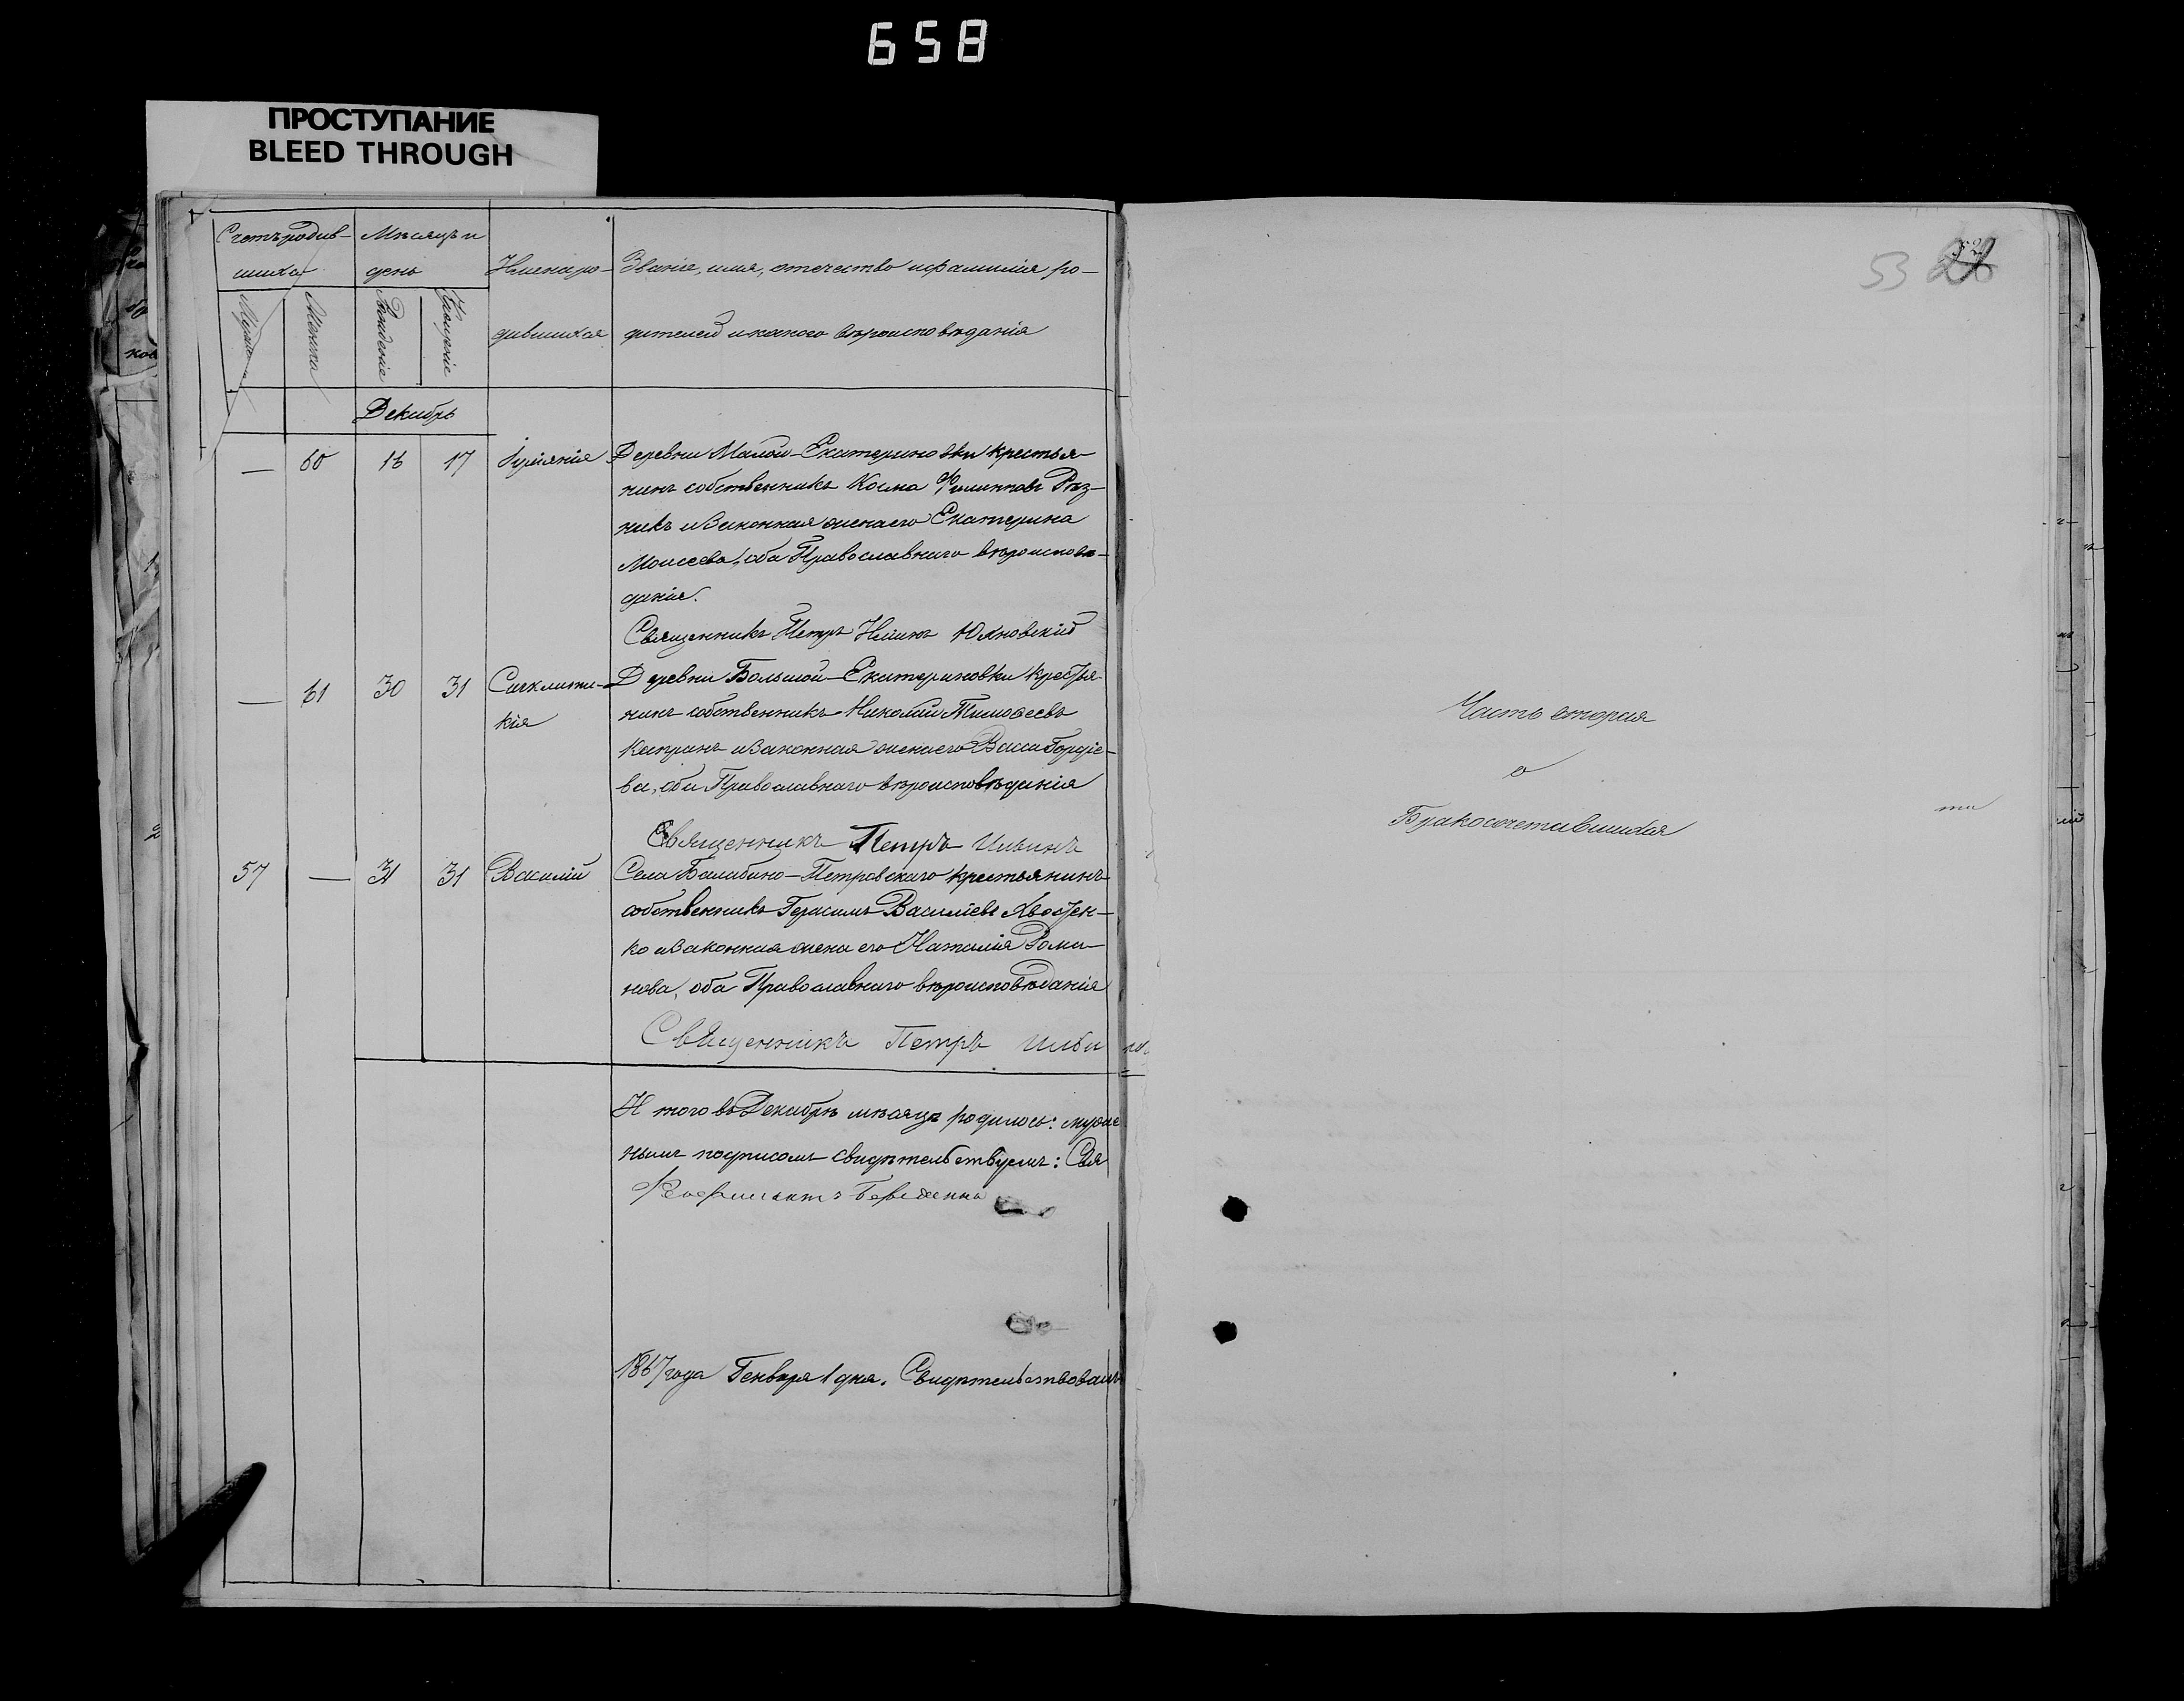 658
ПРОСТУПАНИЕ
BLEED THROUGH
Счетъ родив-
шихся
Мѣсяцъ и
день
Имена ро-
дившихся
Званіе, имя, отечество и фамилія ро-
дителей и какого вѣроисповѣданія
Мужеска
Женска
Рожденіе
Крещеніе
Декабрь
— 60 16 17 Іуліанія Деревни Малой-Екатериновки крестья-
нинъ собственникъ Косма Филипповъ Рѣз-
никъ и Законная жена его Екатерина
Моисеева, оба Православнаго вѣроисповѣ-
данія.
Священникъ Петръ Ильинъ Юхновскій
— 61 30 31 Сигклити-
кія
Деревни Большой-Екатериновки крестья-
нинъ собственникъ Николай Тимофеевъ
Капранъ и Законная жена его Васса Гордіе-
ва, оба Православнаго вѣроисповѣданія
Священникъ Петръ Ильинъ
57 — 31 31 Василій Села Балабино-Петровскаго крестьянинъ
собственникъ Герасимъ Василіевъ Хвостен-
ко и Законная жена его Наталія Рома-
нова, оба Православнаго вѣроисповѣданія
Священникъ Петръ Ильи нъ
И того въ Декабрѣ мѣсяцѣ родилось: муже
нымъ подписомъ свидѣтельствуемъ: Свя
1867 года Генваря 1 дня. Свидѣтельствовалъ
53
Часть вторая
о
Бракосочетавшихся